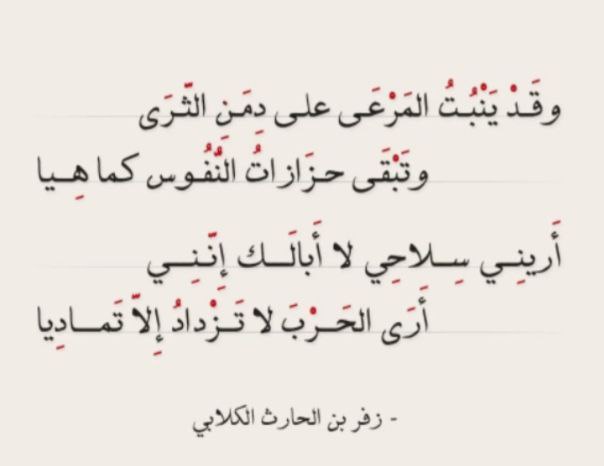 وقَدْ يَنْبُتُ المَرْعَى على دِمَنِ الثَّرَى
وتَبْقَى حزَازاتُ النُّفُوس كما هِيا
أَريني سِلاحِي لا أَبالَك إنَّنِي
أَرَى الحَرْبَ لا تَزْدادُ إِلاّ تَمادِيا
- زفر بن الحارث الكلابي